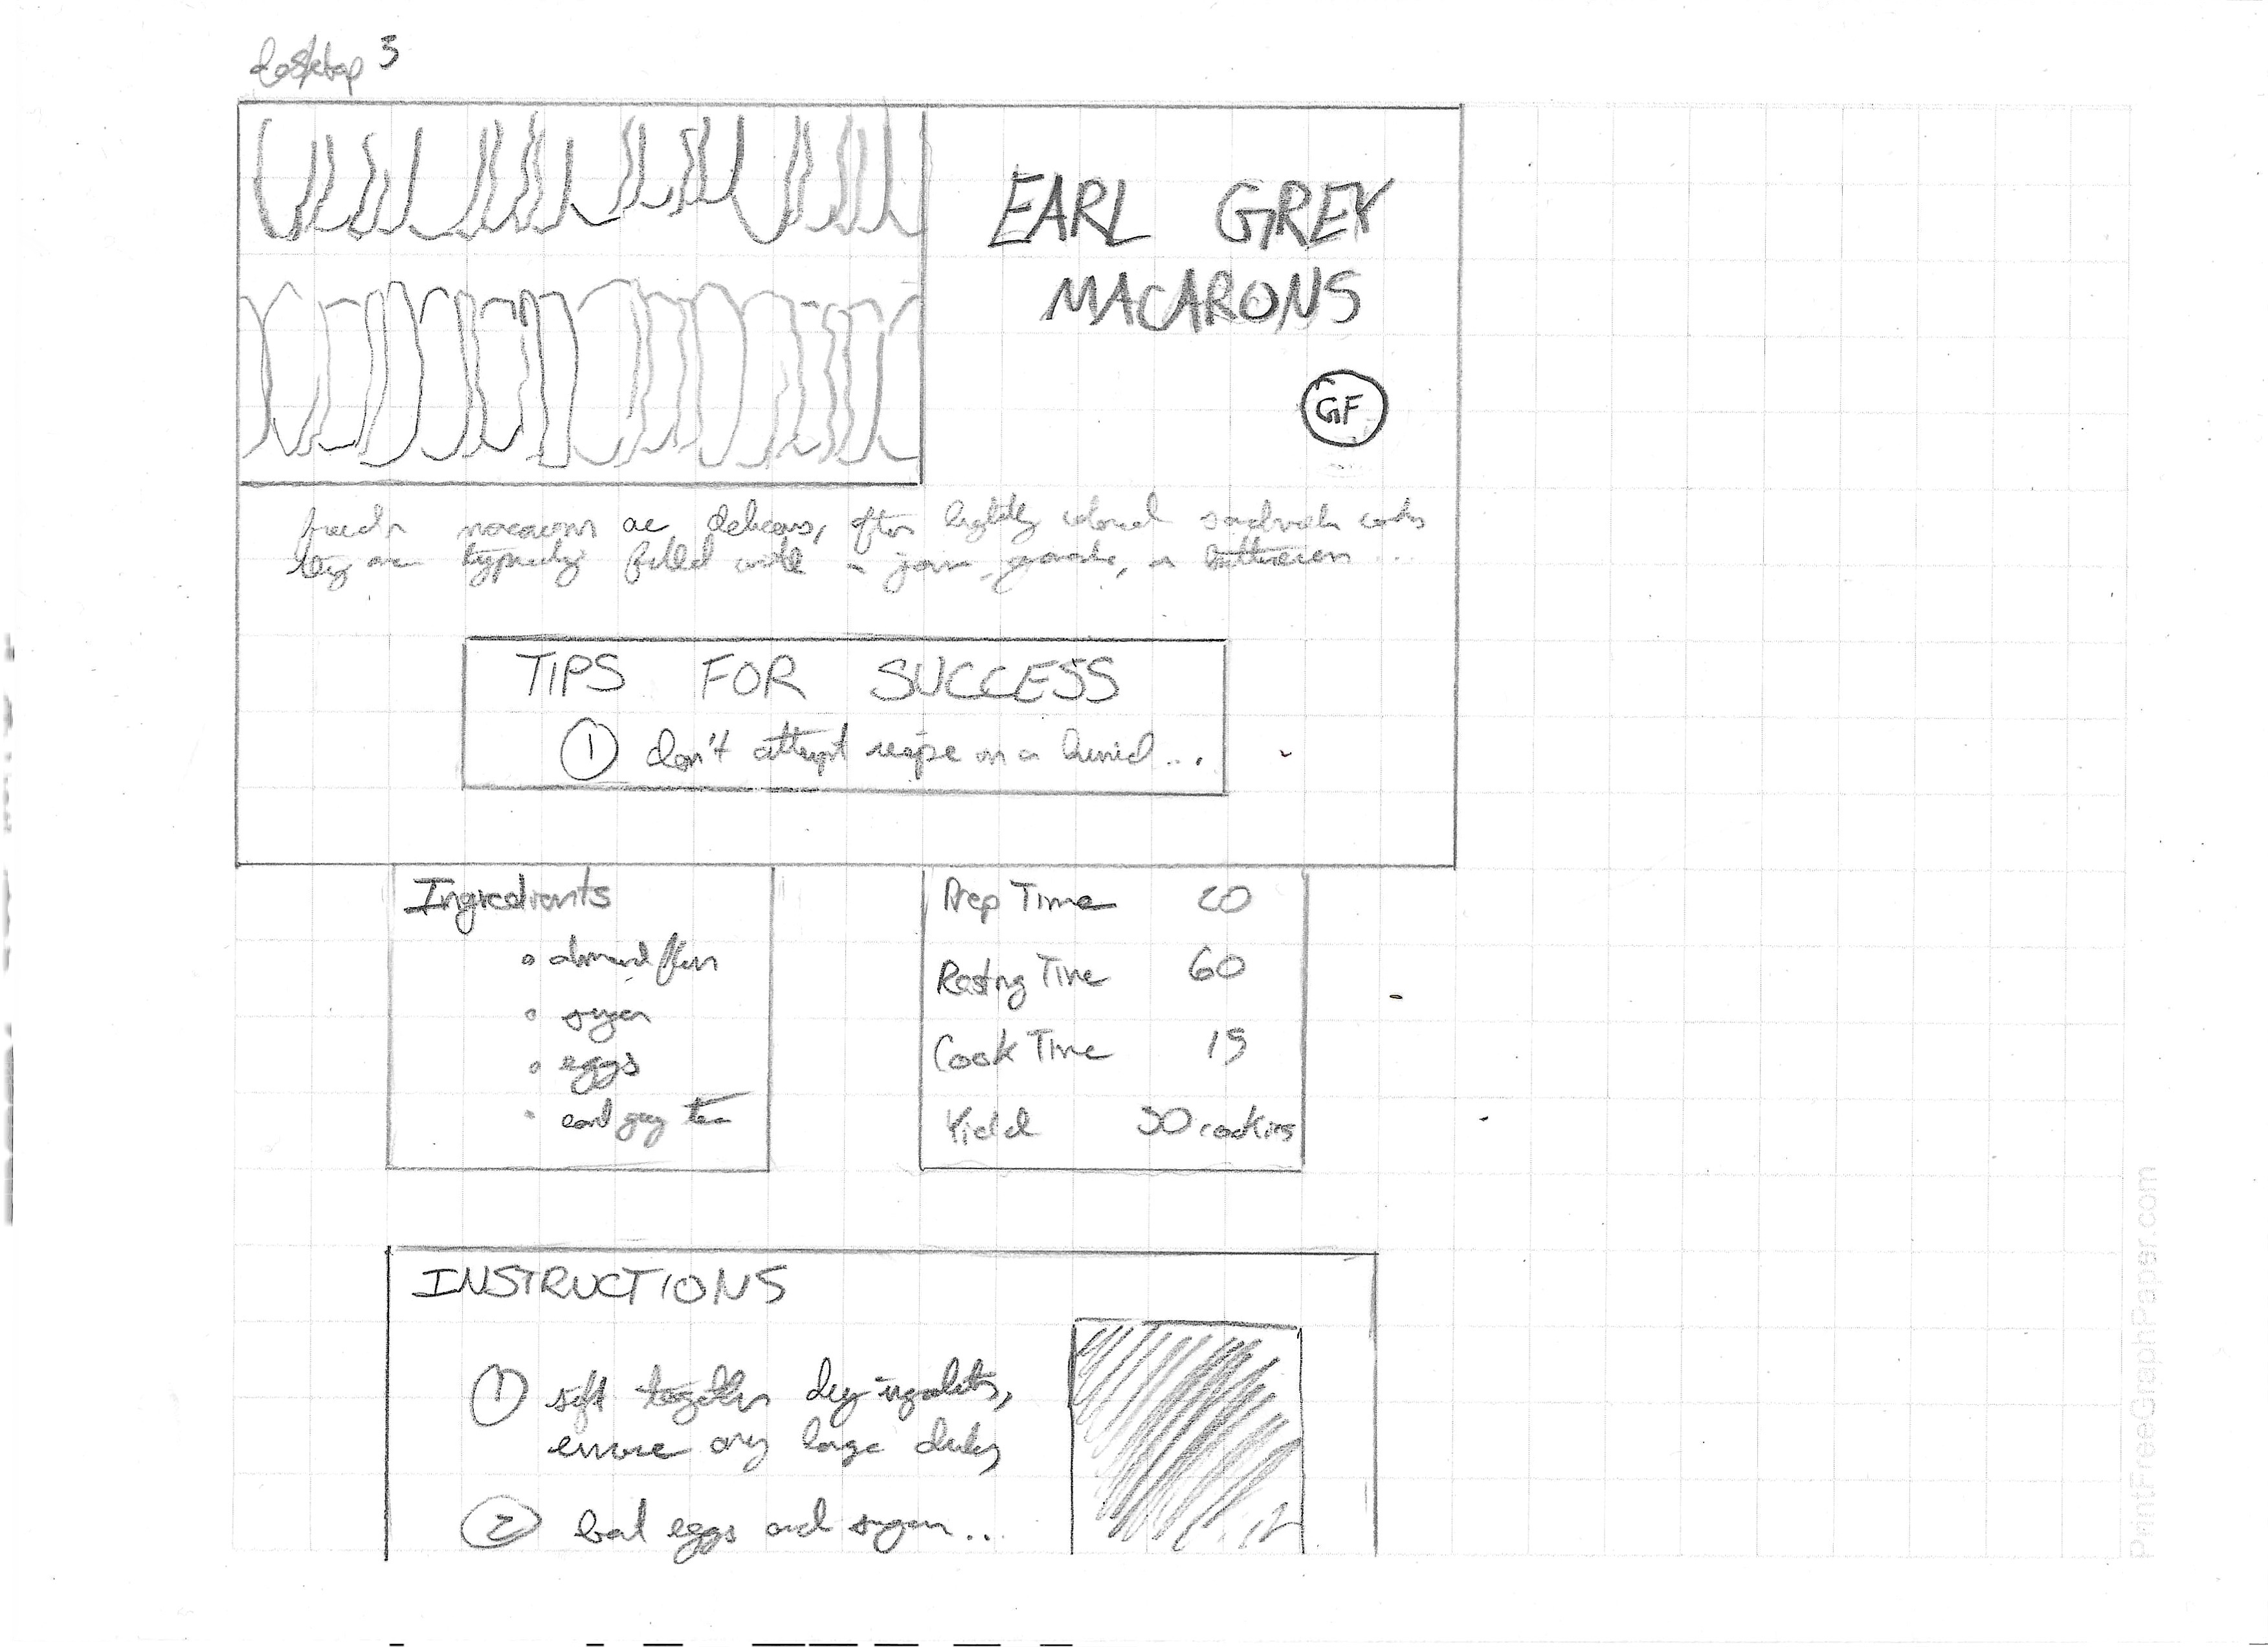 desktop 3
EARL GREY
MACARONS
GF
french macarons are delicious, often brightly colored sandwich cookies
they are typically filled with a jam, ganache, or buttercream...
TIPS FOR SUCCESS
1 don't attempt recipe on a humid...
Ingredients
almond flour
sugar
eggs
earl grey tea
Prep Time 20
Resting Time 60
Cook Time 15
Yield 30 cookies
INSTRUCTIONS
1 sift together dry ingredients,
any large
2 beat eggs and sugar...
PrintFreeGraphPaper.com